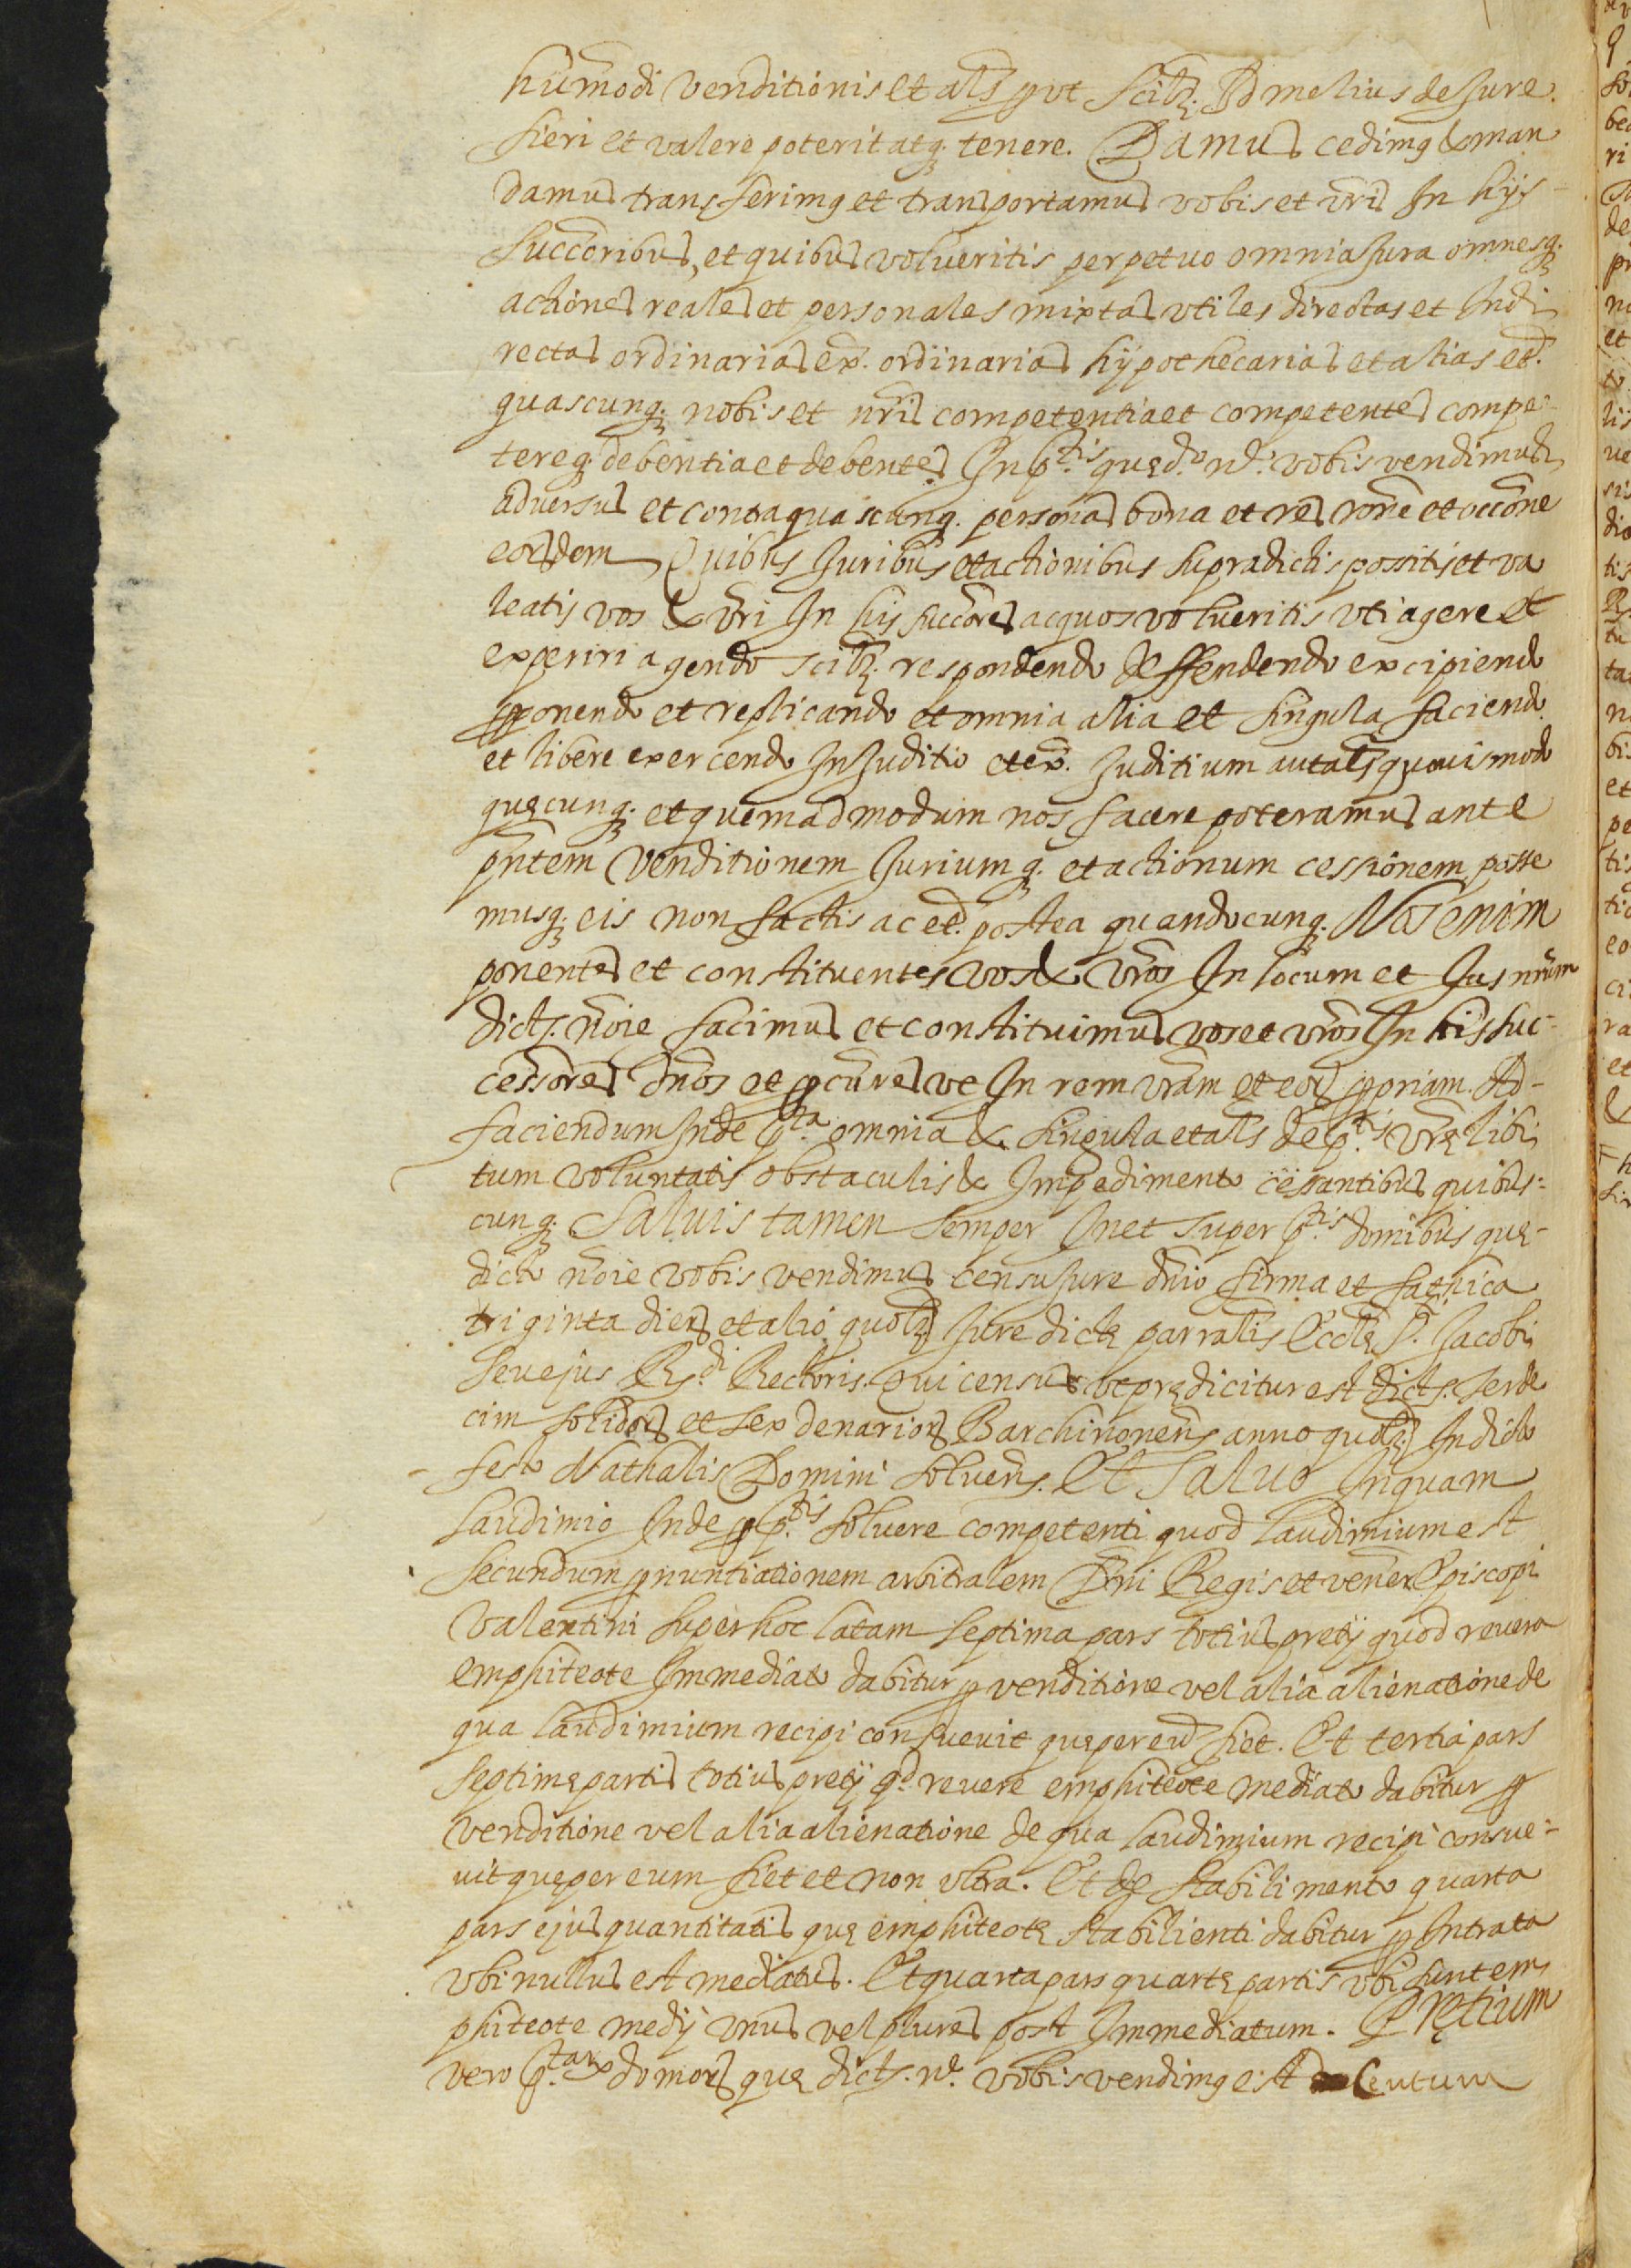 hu͞modi venditionis et al͞s put scibꝫ. Id melius de Jure.
fieri et valere poterit atqꝫ. tenere. Damus cedimꝯ & man
damus transferimꝯ et transportamus vobis et vr͞is In hijs
succ͞oribus, et quibus volueritis perpetuo omnia Jura omnesqꝫ.
actiones reales et personales mixtas vtiles directas et Indi
rectas ordinarias ex͞. ordinarias hÿpothecarias et alias et͞.
quascunqꝫ. nobis et nr͞is competentia et competentes compe-
tereqꝫ. debentia et debentes In p.tis quę d.o n.e vobis vendimus
aduersus et contra quascunqꝫ. personas bona et res ro͞ne et occ͞one
eorūdem Quibus Juribus et actionibus supradictis possitis et va
leatis vos & vr͞i In his succ͞ores ac quos volueritis vti agere et
experiri agendo scibꝫ. respondendo deffendendo excipiendo
ꝓponendo et replicando et omnia alia et singula faciendo
et libere exercendo In Juditio et ex͞. Juditium aut al͞s quouismodo
quęcunqꝫ. et quemadmodum nos facere poteramus ante
pn͞tem venditionem Juriumqꝫ. et actionum cessionem posse
musqꝫ. eis non factis ac et͞. postea quandocunqꝫ. Nos enim
ponentes et constituentes vos & vr͞os In locum et Jus nr͞um
dicts. no͞ie facimus et constituimus vos et vr͞os In his suc-
cess͞ores dn͞os et ꝓcu͞res vt In rem vr͞am et eorꝝ ꝓpriam. Ad-
faciendum Inde p.ta omnia & singula et al͞s de p.tis vr͞ę libi
tum voluntatis obstaculis & Impedimento cessantibus quibus-
cunqꝫ. Saluis tamen semper In et super p.tis domibus quę-
dicto no͞ie vobis vendimus censu Jure dn͞io firma et fathica
triginta dierꝝ et alio quolꝫ Jure dictę parral͞is Eccl͞ę S.ti Jacobi
seu ejus R.di Rectoris. Qui census vt prędicitur est dicts. serde
cim solidorꝝ et sex denariorꝝ Barchinonens͞ anno quolꝫ. In dicto
festo Nathalis Domini soluens͞. Et Saluo Inquam
laudimio Inde ꝓ p.tis soluere competenti quod laudimium est
secundum ꝓnuntiationem arbitralem Dn͞i Regis et vener͞. Episcopi
Valentini super hoc latam septima pars totius pretij quod reuera
emphiteote Immediato dabitur ꝓ venditione vel alia alienatione de
qua laudimium recipi consueuit quę per eu͞ fiet. Et tertia pars
septimę partis totius pretij qd͞ reuere emphiteote mediato dabitur ꝓ
venditione vel alia alienatione de qua laudimium recipi consue-
uit quę per eum fiet et non vltra. Et de stabilimento quarta
pars ejus quantitatis quę emphiteotę stabilienti dabitur ꝓ Intrata
vbi nullus est mediatus. Et quarta pars quartę partis vbi sunt em
phiteote medij vnus vel plures post Immediatum. Prętium
vero p.tarꝝ domorꝝ quę dicts. n.e vobis vendimꝯ est Centum